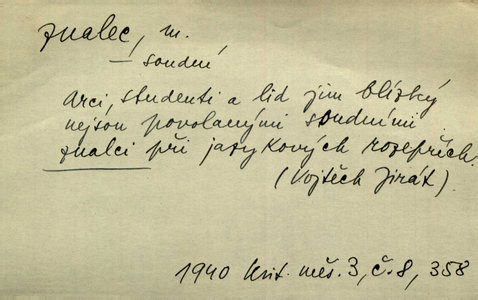 znalec, m.
– soudní
Arci, studenti a lid jim blízký
nejsou povolanými soudními
znalci při jazykových rozepřích.
(Vojtěch Jirát).
1940 Krit. měs. 3, č. 8, 358